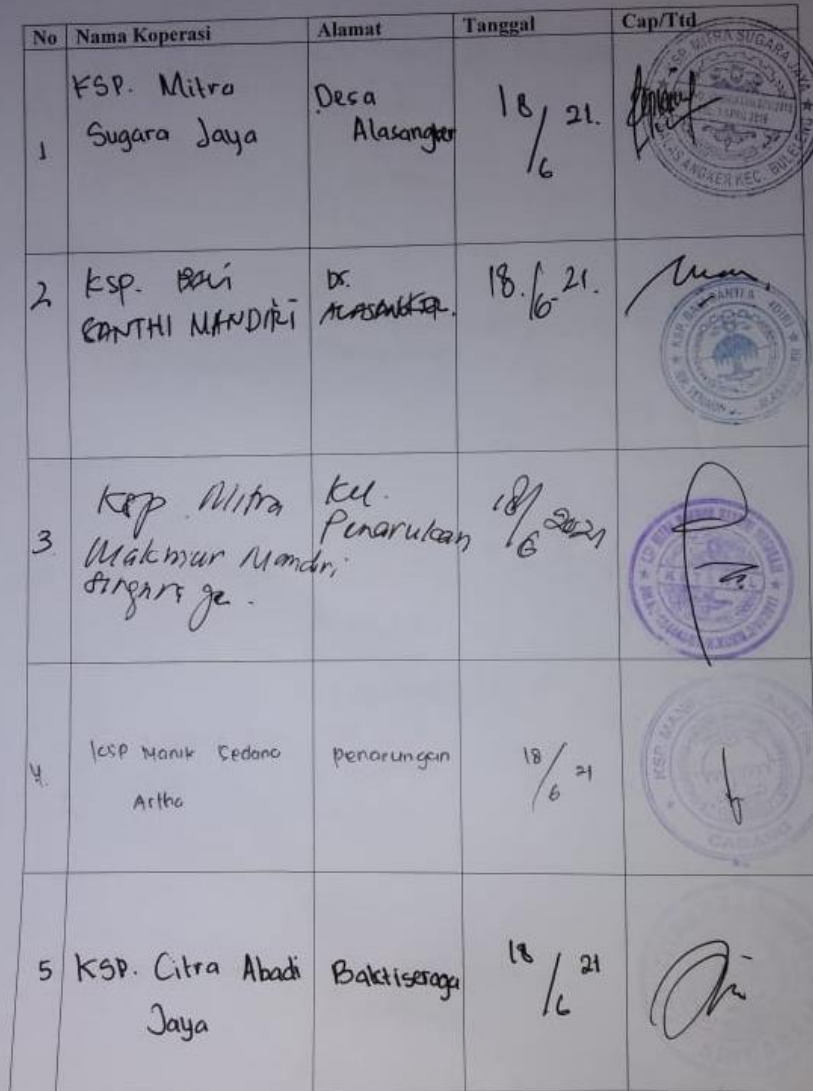 No Nama Koperasi Alamat Tanggal Cap/Ttd
1 KSP. Mitra Sugara Jaya
Desa Alasangker
18/6 21.
KSP MITRA SUGARA JAYA
ALAS ANGKER KEC. BULELENG
2 KSP. Bali SANTHI MANDIRI
Ds. ALASANGKER.
18./6 21.
KSP. BALI SANTI
3 Ksp Mitra Makmur Mandiri
Kel. Penarukan
18/6 2021
4. KSP Manik Sedana Artha
Penarungan
18/6 21
KSP MANIK
CABANG
5 KSP. Citra Abadi Jaya
Baktiseraga
18/6 21